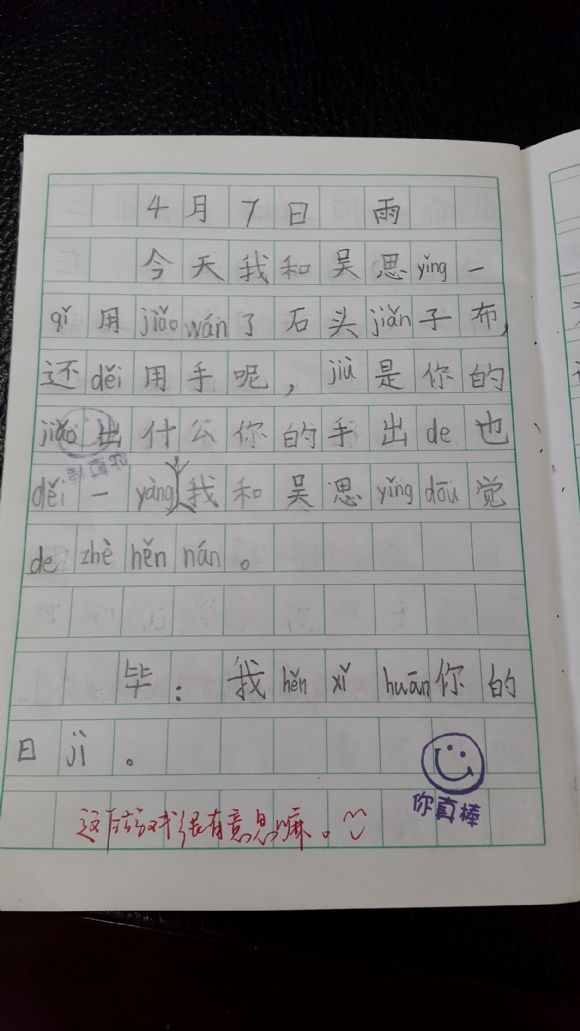 4月7日 雨
今天我和吴思yǐng一
qǐ用jiǎo wán了石头jiǎn子布,
还děi用手呢，jiù是你的
jiǎo出什公你的手出de也
děi一yàng我和吴思yǐng dōu觉
de zhè hěn nán。
毕：我hěn xǐ huān你的
日jì。
你真棒
这个游戏很有意思嘛。
你真棒